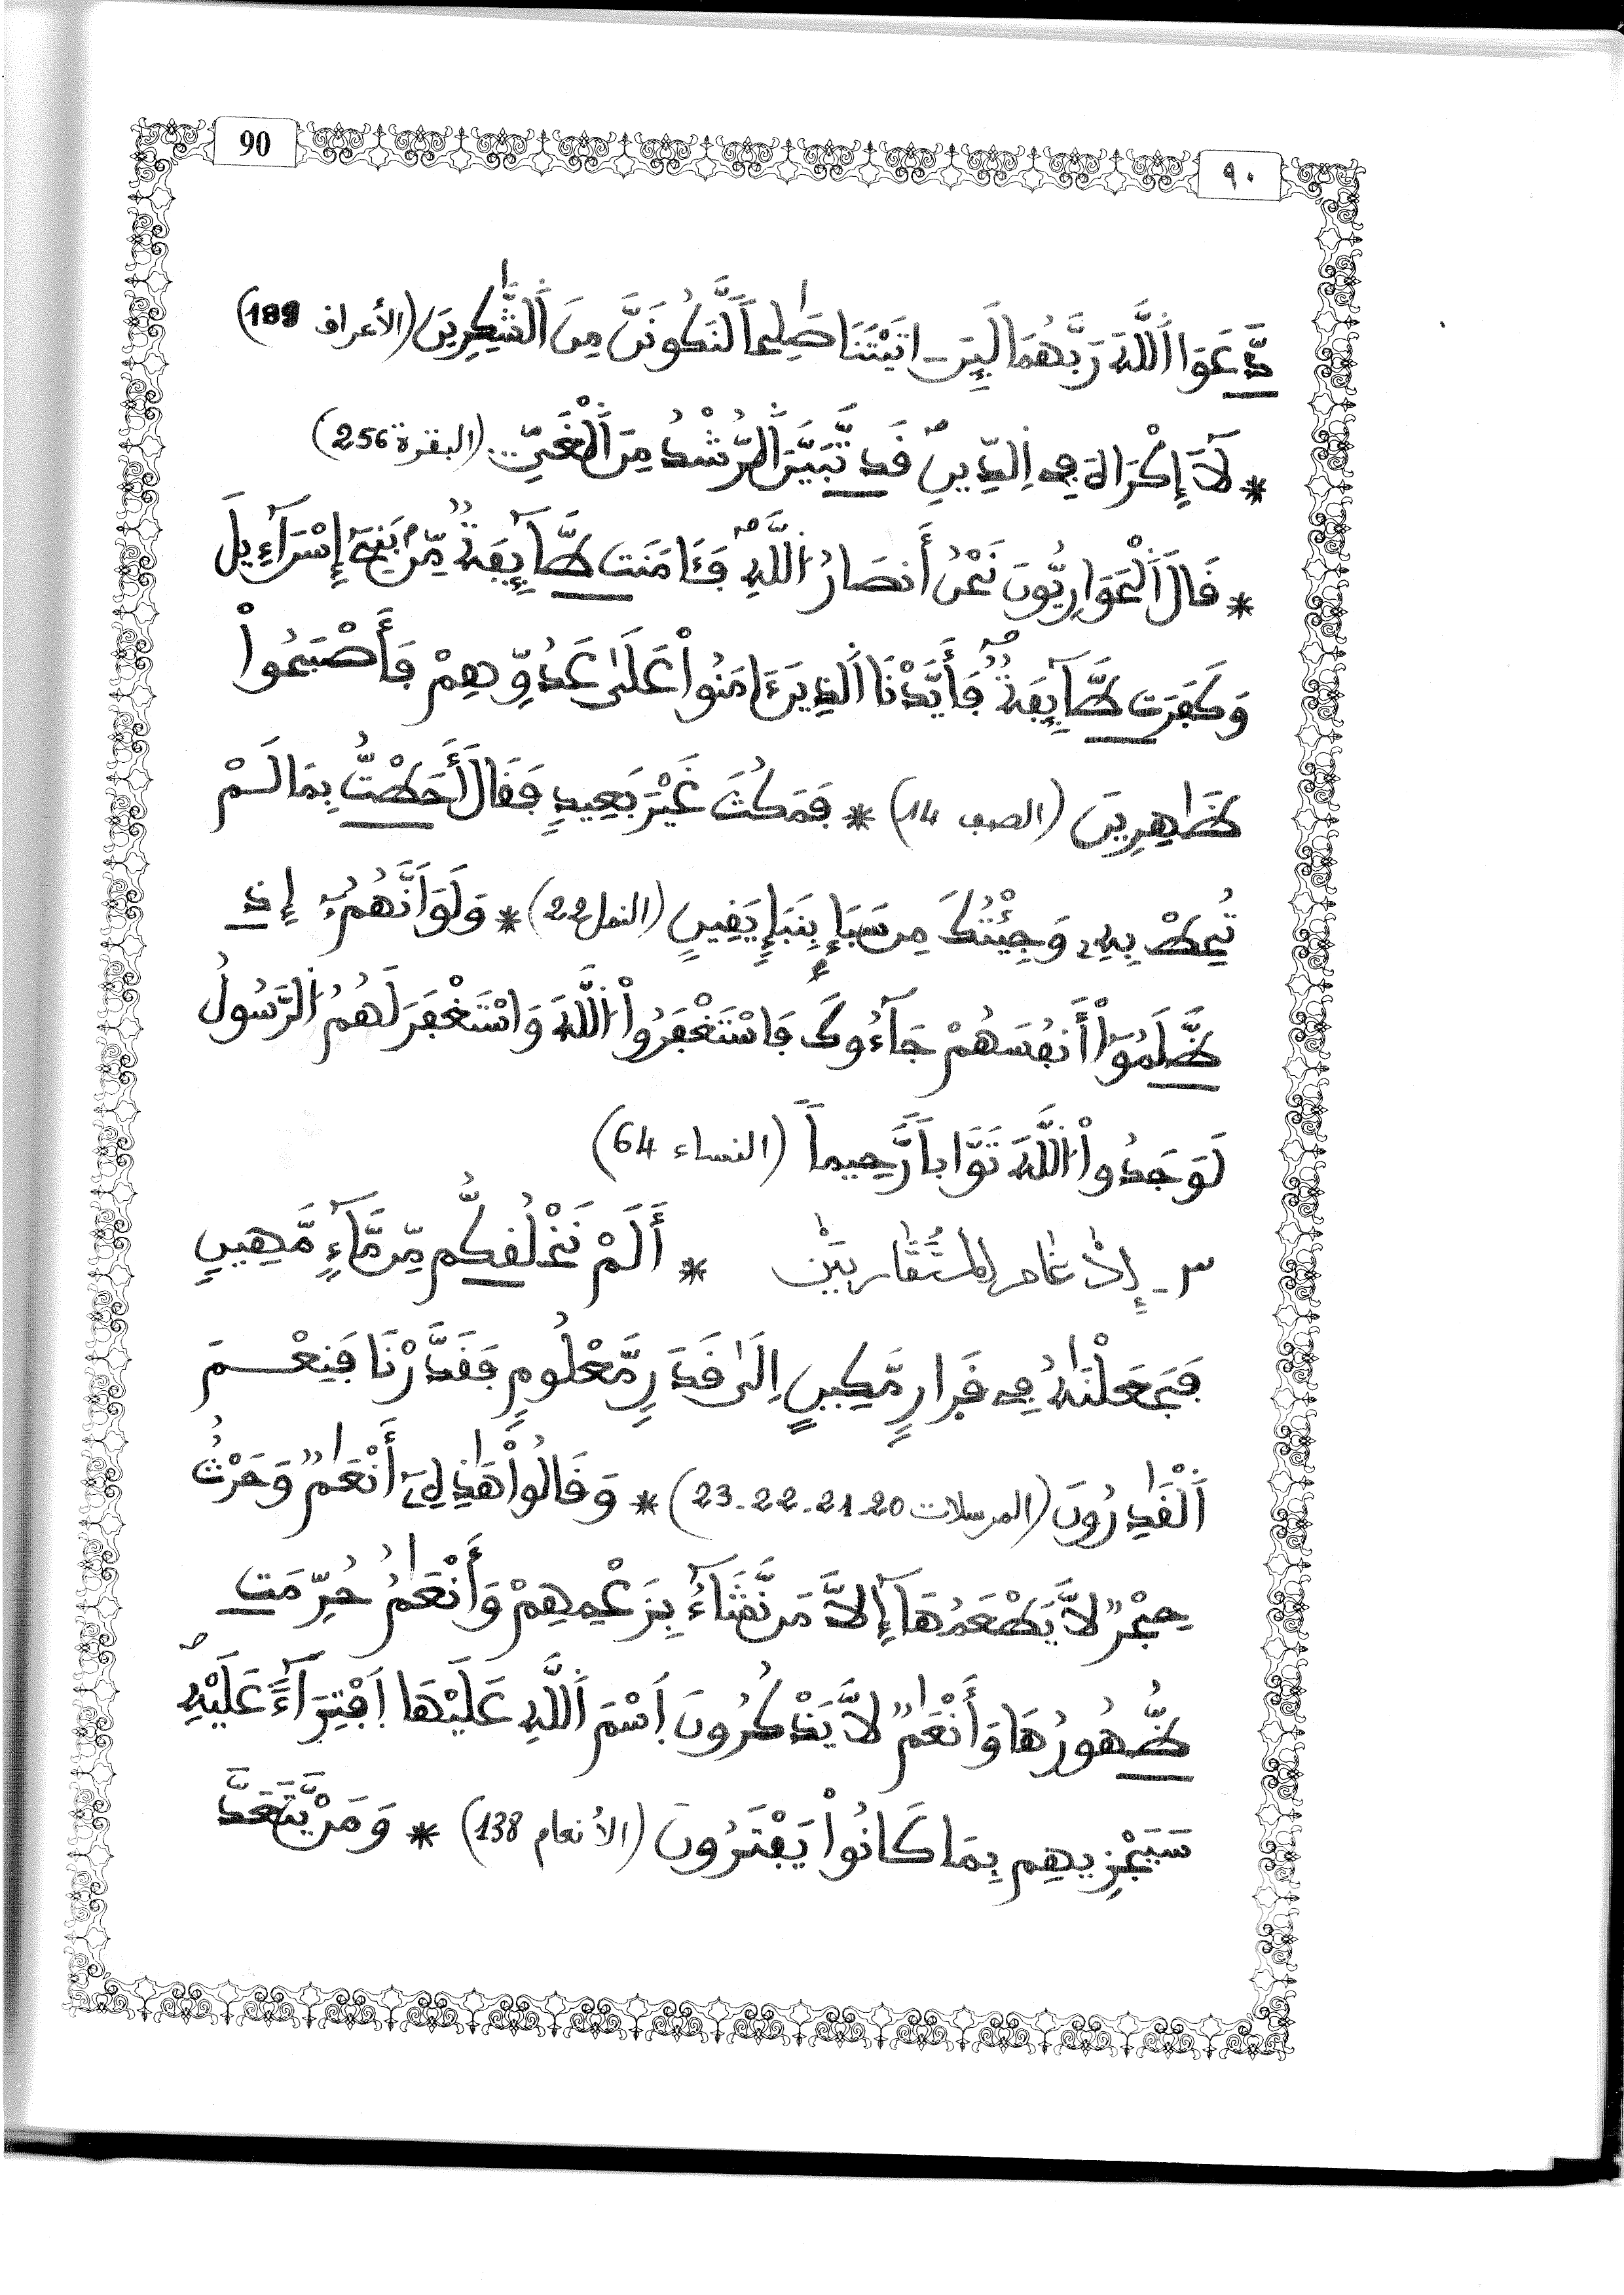 90
٩٠
دَّعَوَا اَللَّهَ رَبَّهُمَا لَئِنَ اتَيْتَنَا صَٰلِحاً لَّنَكُونَنَّ مِنَ اَلشَّٰكِرِينَ (الأعراف 189)
* لَآ إِكْرَاهَ فِے اِلدِّينِ قَد تَّبَيَّنَ اَلرُّشْدُ مِنَ اَلْغَيِّ.. (البقرة 256)
* قَالَ اَلْحَوَارِيُّونَ نَحْنُ أَنصَارُ اُللَّهِ فَـَٔامَنَت طَّآئِفَةٌ مِّنۢ بَنِےٓ إِسْرَآءِيلَ
وَكَفَرَت طَّآئِفَةٌ فَأَيَّدْنَا اَلذِينَ ءَامَنُواْ عَلَىٰ عَدُوِّهِمْ فَأَصْبَحُواْ
ظَٰهِرِينَ (الصف 14) * فَمَكُثَ غَيْرَ بَعِيدٍ فَقَالَ أَحَطتُّ بِمَا لَمْ
تُحِطْ بِهِۦ وَجِئْتُكَ مِن سَبَإٍ بِنَبَإٍ يَقِينٍ (النمل 22) * وَلَوَ اَنَّهُمُۥٓ إِذ
ظَّلَمُوٓاْ أَنفُسَهُمْ جَآءُوكَ فَاسْتَغْفَرُواْ اُللَّهَ وَاسْتَغْفَرَ لَهُمُ اُلرَّسُولُ
لَوَجَدُواْ اُللَّهَ تَوَّاباً رَّحِيماً (النساء 64)
٣ـ إِدْغَام المُتَقَارِبَيْن * أَلَمْ نَخْلُقكُّم مِّن مَّآءٍ مَّهِينٍ
فَجَعَلْنَٰهُ فِے قَرَارٍ مَّكِينٍ اِلَىٰ قَدَرٍ مَّعْلُومٍ فَقَدَّرْنَا فَنِعْمَ
اَلْقَٰدِرُونَ (المرسلات 20-21-22-23) * وَقَالُواْ هَٰذِهِۦٓ أَنْعَٰمٌ وَحَرْثٌ
حِجْرٌ لاَّ يَطْعَمُهَآ إِلاَّ مَن نَّشَآءُ بِزَعْمِهِمْ وَأَنْعَٰمٌ حُرِّمَت
ظُّهُورُهَا وَأَنْعَٰمٌ لاَّ يَذْكُرُونَ اَسْمَ اَللَّهِ عَلَيْهَا اَفْتِرَآءً عَلَيْهِ
سَيَجْزِيهِم بِمَا كَانُواْ يَفْتَرُونَ (الأنعام 138) * وَمَنْ يَّتَعَدَّ